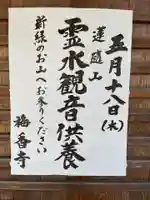 五月十八日(木)
蓮臺山
霊水観音供養
新緑のお山へお参りください
福香寺